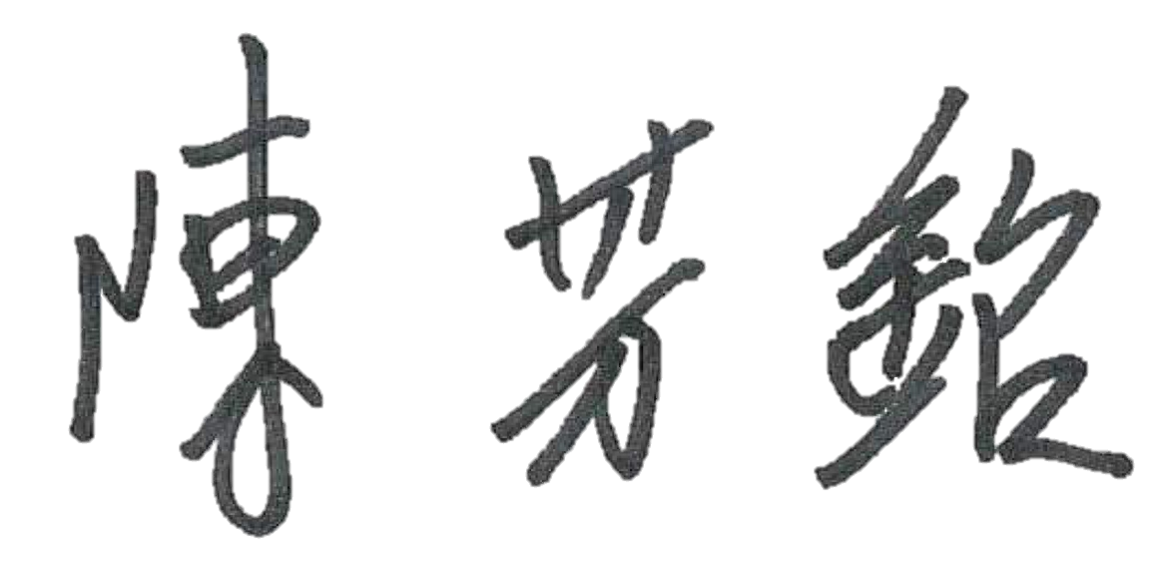 陳芳銘